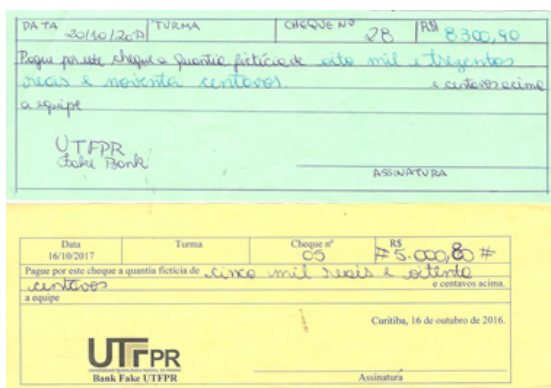 DATA 20/10/2017 TURMA CHEQUE Nº 28 R$ 8300,90
Pague por este cheque a quantia fictícia de oito mil e trezentos
reais e noventa centavos. e centavos acima
a equipe
UTFPR
Fake Bank
ASSINATURA
Data Turma Cheque nº R$
16/10/2017 05 # 5.000,80 #
Pague por este cheque a quantia fictícia de cinco mil reais e oitenta
centavos e centavos acima.
a equipe
Curitiba, 16 de outubro de 2016.
UTFPR
Bank Fake UTFPR Assinatura